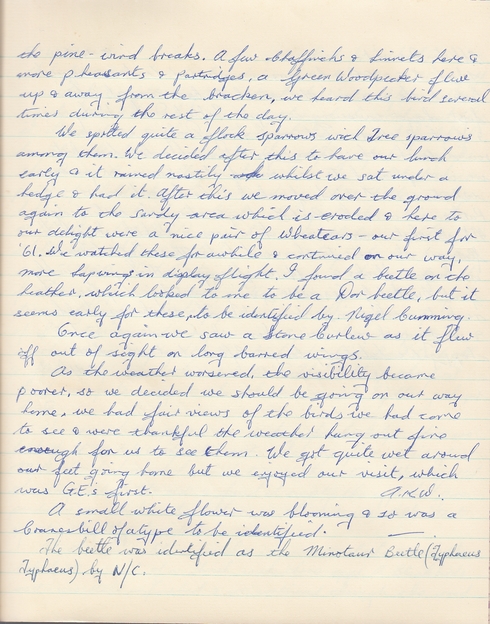 the pine-wind breaks. A few Chaffinchs & Linnets here &
more pheasants & partridges, a Green Woodpecker flew
up & away from the bracken, we heard this bird several
times during the rest of the day.
We spotted quite a flock sparrows with Tree sparrows
among them. We decided after this to have our lunch
early & it rained nastily whilst we sat under a
hedge & had it. After this we moved over the ground
again to the sandy area which is eroded & here to
our delight were a nice pair of Wheatears - our first for
'61. We watched these for awhile & continued on our way,
more Lapwings in display flight. I found a beetle on the
heather, which looked to me to be a Dor beetle, but it
seems early for these, to be identified by Nigel Cumming.
Once again we saw a Stone Curlew as it flew
off out of sight on long barred wings.
As the weather worsened, the visibility became
poorer, so we decided we should be going on our way
home, we had fair views of the birds we had come
to see & were thankful the weather hung out fine
enough for us to see them. We got quite wet around
our feet going home but we enjoyed our visit, which
was G.E's first. A.K.W.
A small white flower was blooming & so was a
Cranesbill of a type to be identified.
The beetle was identified as the Minotaur Beetle (Typhaeus
Typhaeus) by N/C.